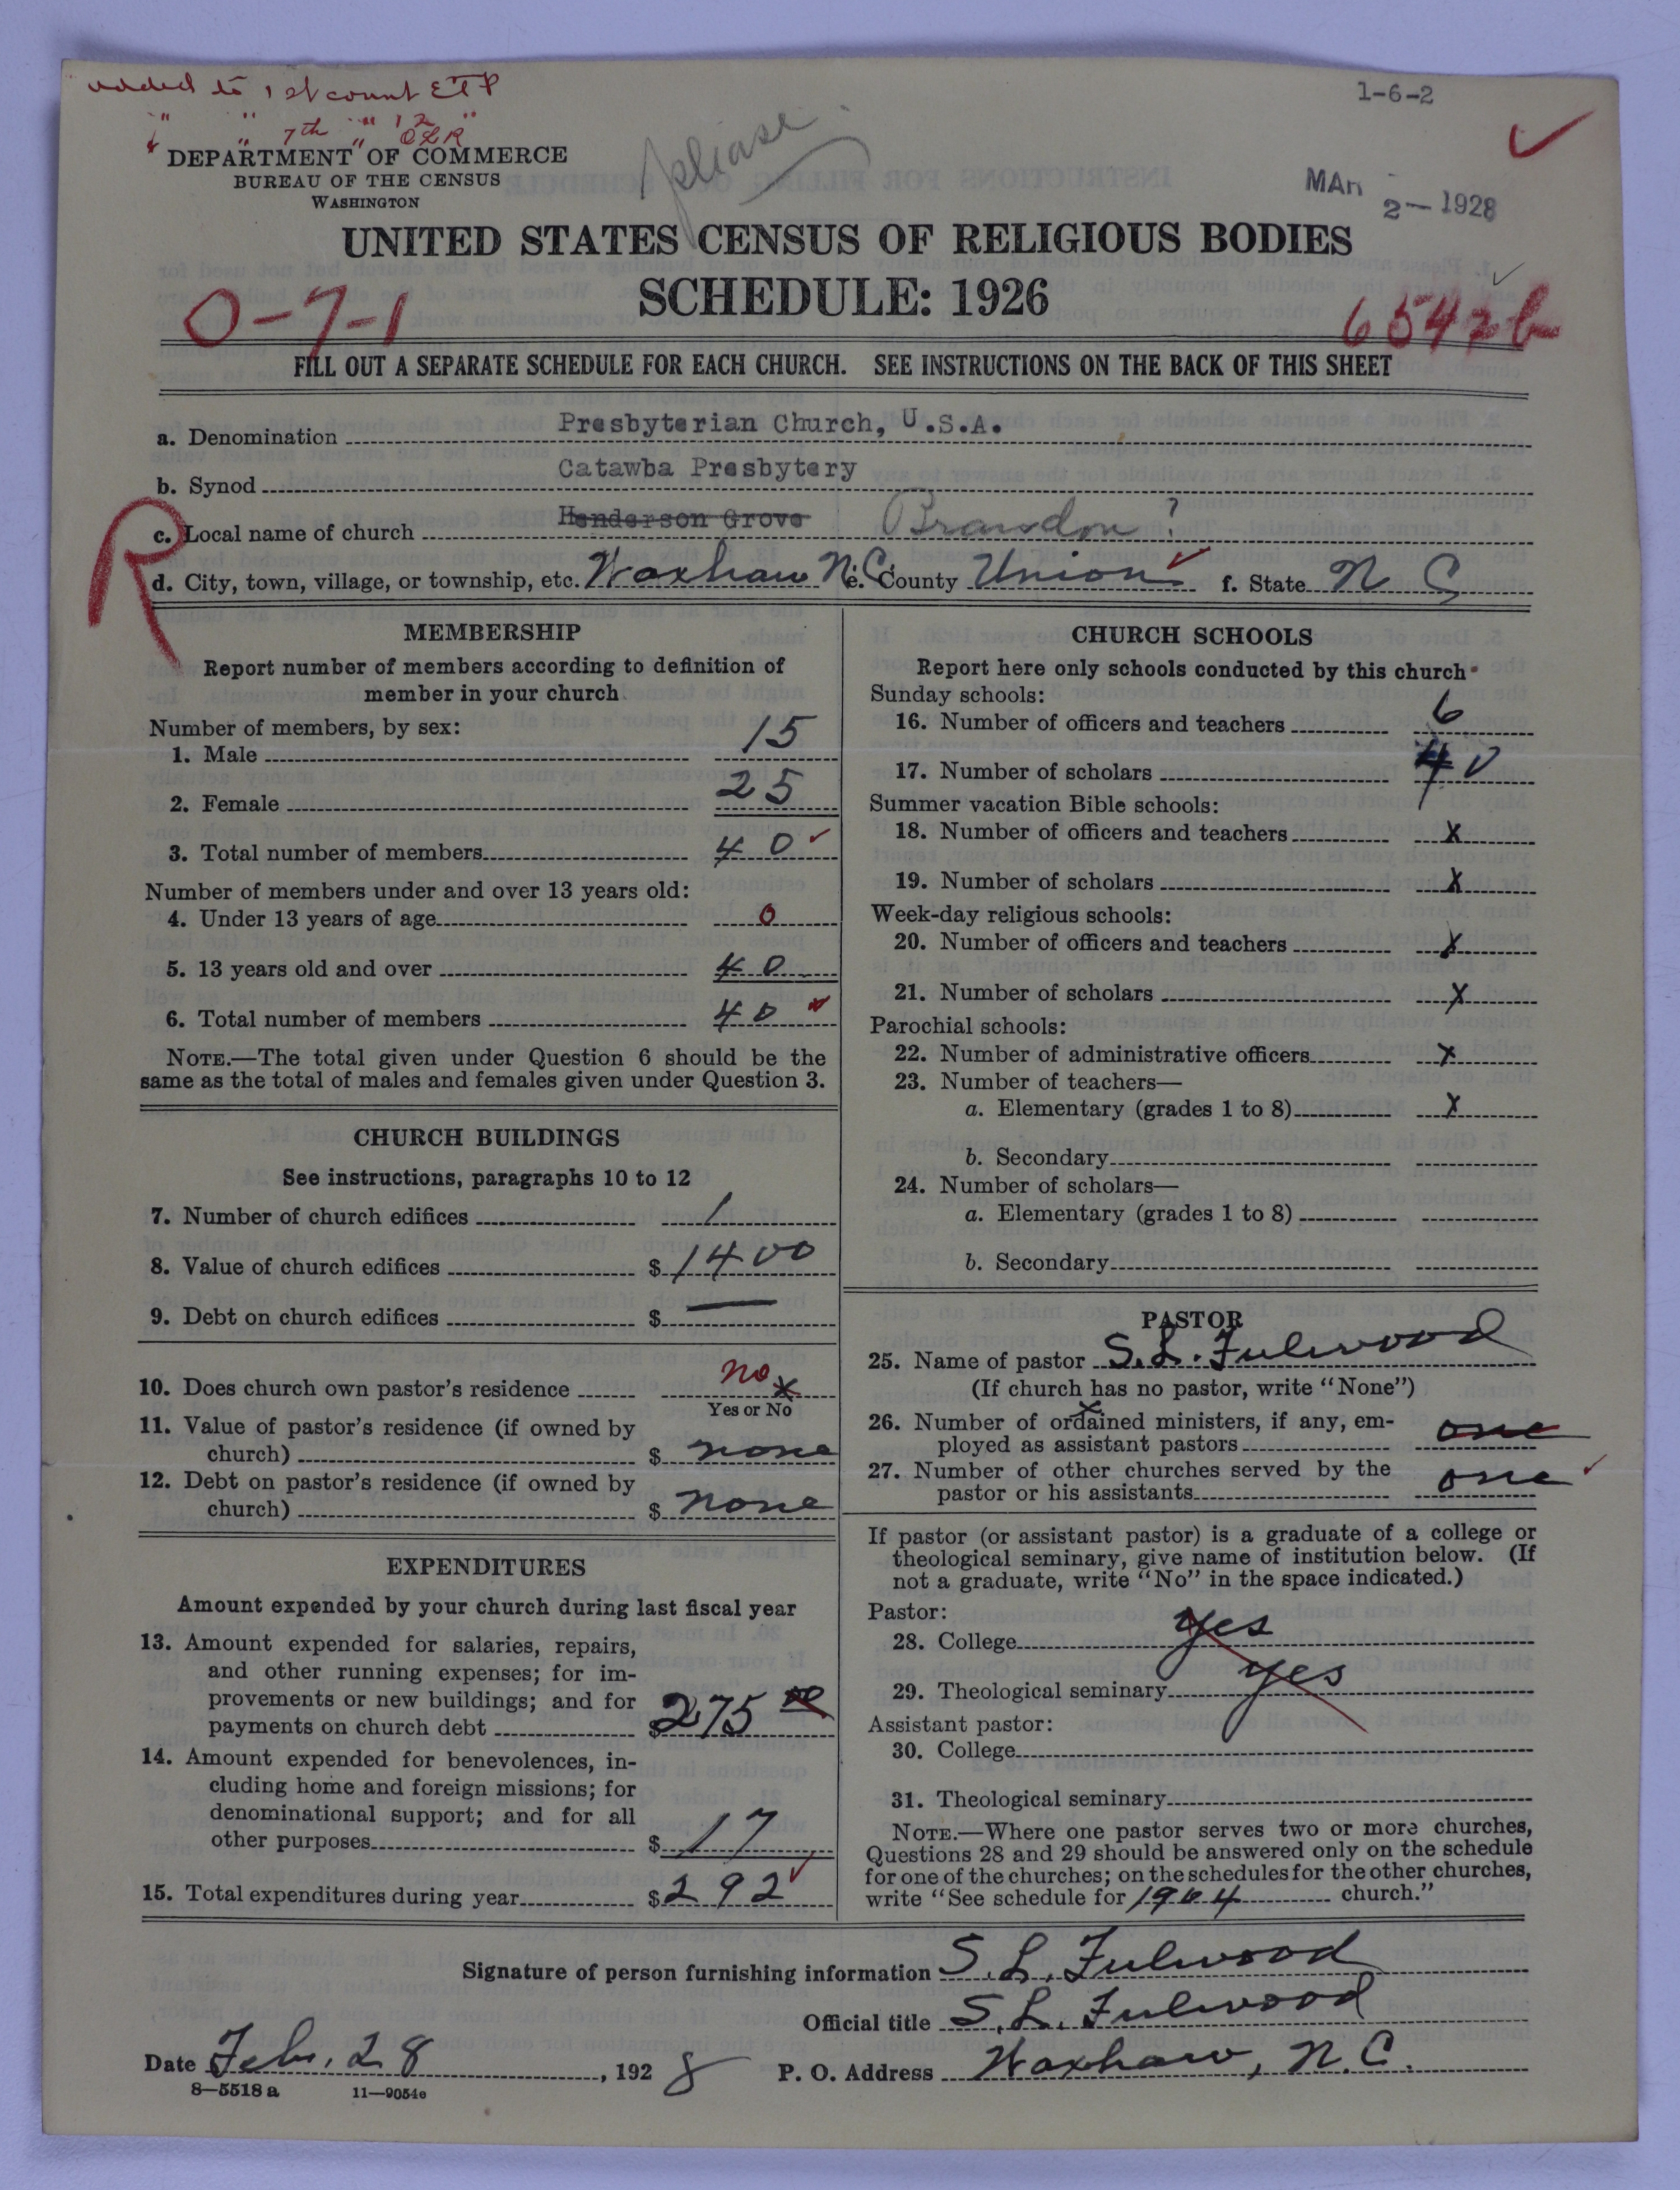 added to 1st count ETP
" " 7th " 12 "
" OLR
1-6-2
please
DEPARTMENT OF COMMERCE
BUREAU OF THE CENSUS
WASHINGTON
MAR 2- 1928
UNITED STATES CENSUS OF RELIGIOUS BODIES
SCHEDULE: 1926
0-7-1
6542b
FILL OUT A SEPARATE SCHEDULE FOR EACH CHURCH. SEE INSTRUCTIONS ON THE BACK OF THIS SHEET
a. Denomination Presbyterian Church, U.S.A.
b. Synod Catawba Presbytery
R
c. Local name of church Henderson Grove Brandon ?
d. City, town, village, or township, etc. Waxhaw N.C. e. County Union f. State N C
MEMBERSHIP
Report number of members according to definition of
member in your church
Number of members, by sex:
1. Male 15
2. Female 25
3. Total number of members 40
Number of members under and over 13 years old:
4. Under 13 years of age 0
5. 13 years old and over 40
6. Total number of members 40
NOTE.—The total given under Question 6 should be the
same as the total of males and females given under Question 3.
CHURCH BUILDINGS
See instructions, paragraphs 10 to 12
7. Number of church edifices 1
8. Value of church edifices $ 1400
9. Debt on church edifices $ —
10. Does church own pastor's residence no x
Yes or No
11. Value of pastor's residence (if owned by
church) $ none
12. Debt on pastor's residence (if owned by
church) $ none
EXPENDITURES
Amount expended by your church during last fiscal year
13. Amount expended for salaries, repairs,
and other running expenses; for im-
provements or new buildings; and for
payments on church debt $ 275 00
14. Amount expended for benevolences, in-
cluding home and foreign missions; for
denominational support; and for all
other purposes $ 17
15. Total expenditures during year $ 292
CHURCH SCHOOLS
Report here only schools conducted by this church
Sunday schools:
16. Number of officers and teachers 6
17. Number of scholars 40
Summer vacation Bible schools:
18. Number of officers and teachers x
19. Number of scholars x
Week-day religious schools:
20. Number of officers and teachers x
21. Number of scholars x
Parochial schools:
22. Number of administrative officers x
23. Number of teachers—
a. Elementary (grades 1 to 8) x
b. Secondary
24. Number of scholars—
a. Elementary (grades 1 to 8)
b. Secondary
PASTOR
25. Name of pastor S. L. Fulwood
(If church has no pastor, write "None")
26. Number of ordained ministers, if any, em-
ployed as assistant pastors one
27. Number of other churches served by the
pastor or his assistants one
If pastor (or assistant pastor) is a graduate of a college or
theological seminary, give name of institution below. (If
not a graduate, write "No" in the space indicated.)
Pastor:
28. College yes
29. Theological seminary yes
Assistant pastor:
30. College
31. Theological seminary
NOTE.—Where one pastor serves two or more churches,
Questions 28 and 29 should be answered only on the schedule
for one of the churches; on the schedules for the other churches,
write "See schedule for 1904 church."
Signature of person furnishing information S. L. Fulwood
Official title S. L. Fulwood
Date Feb. 28, 1928 P. O. Address Waxhaw, N.C.
8—5518 a 11—9054e